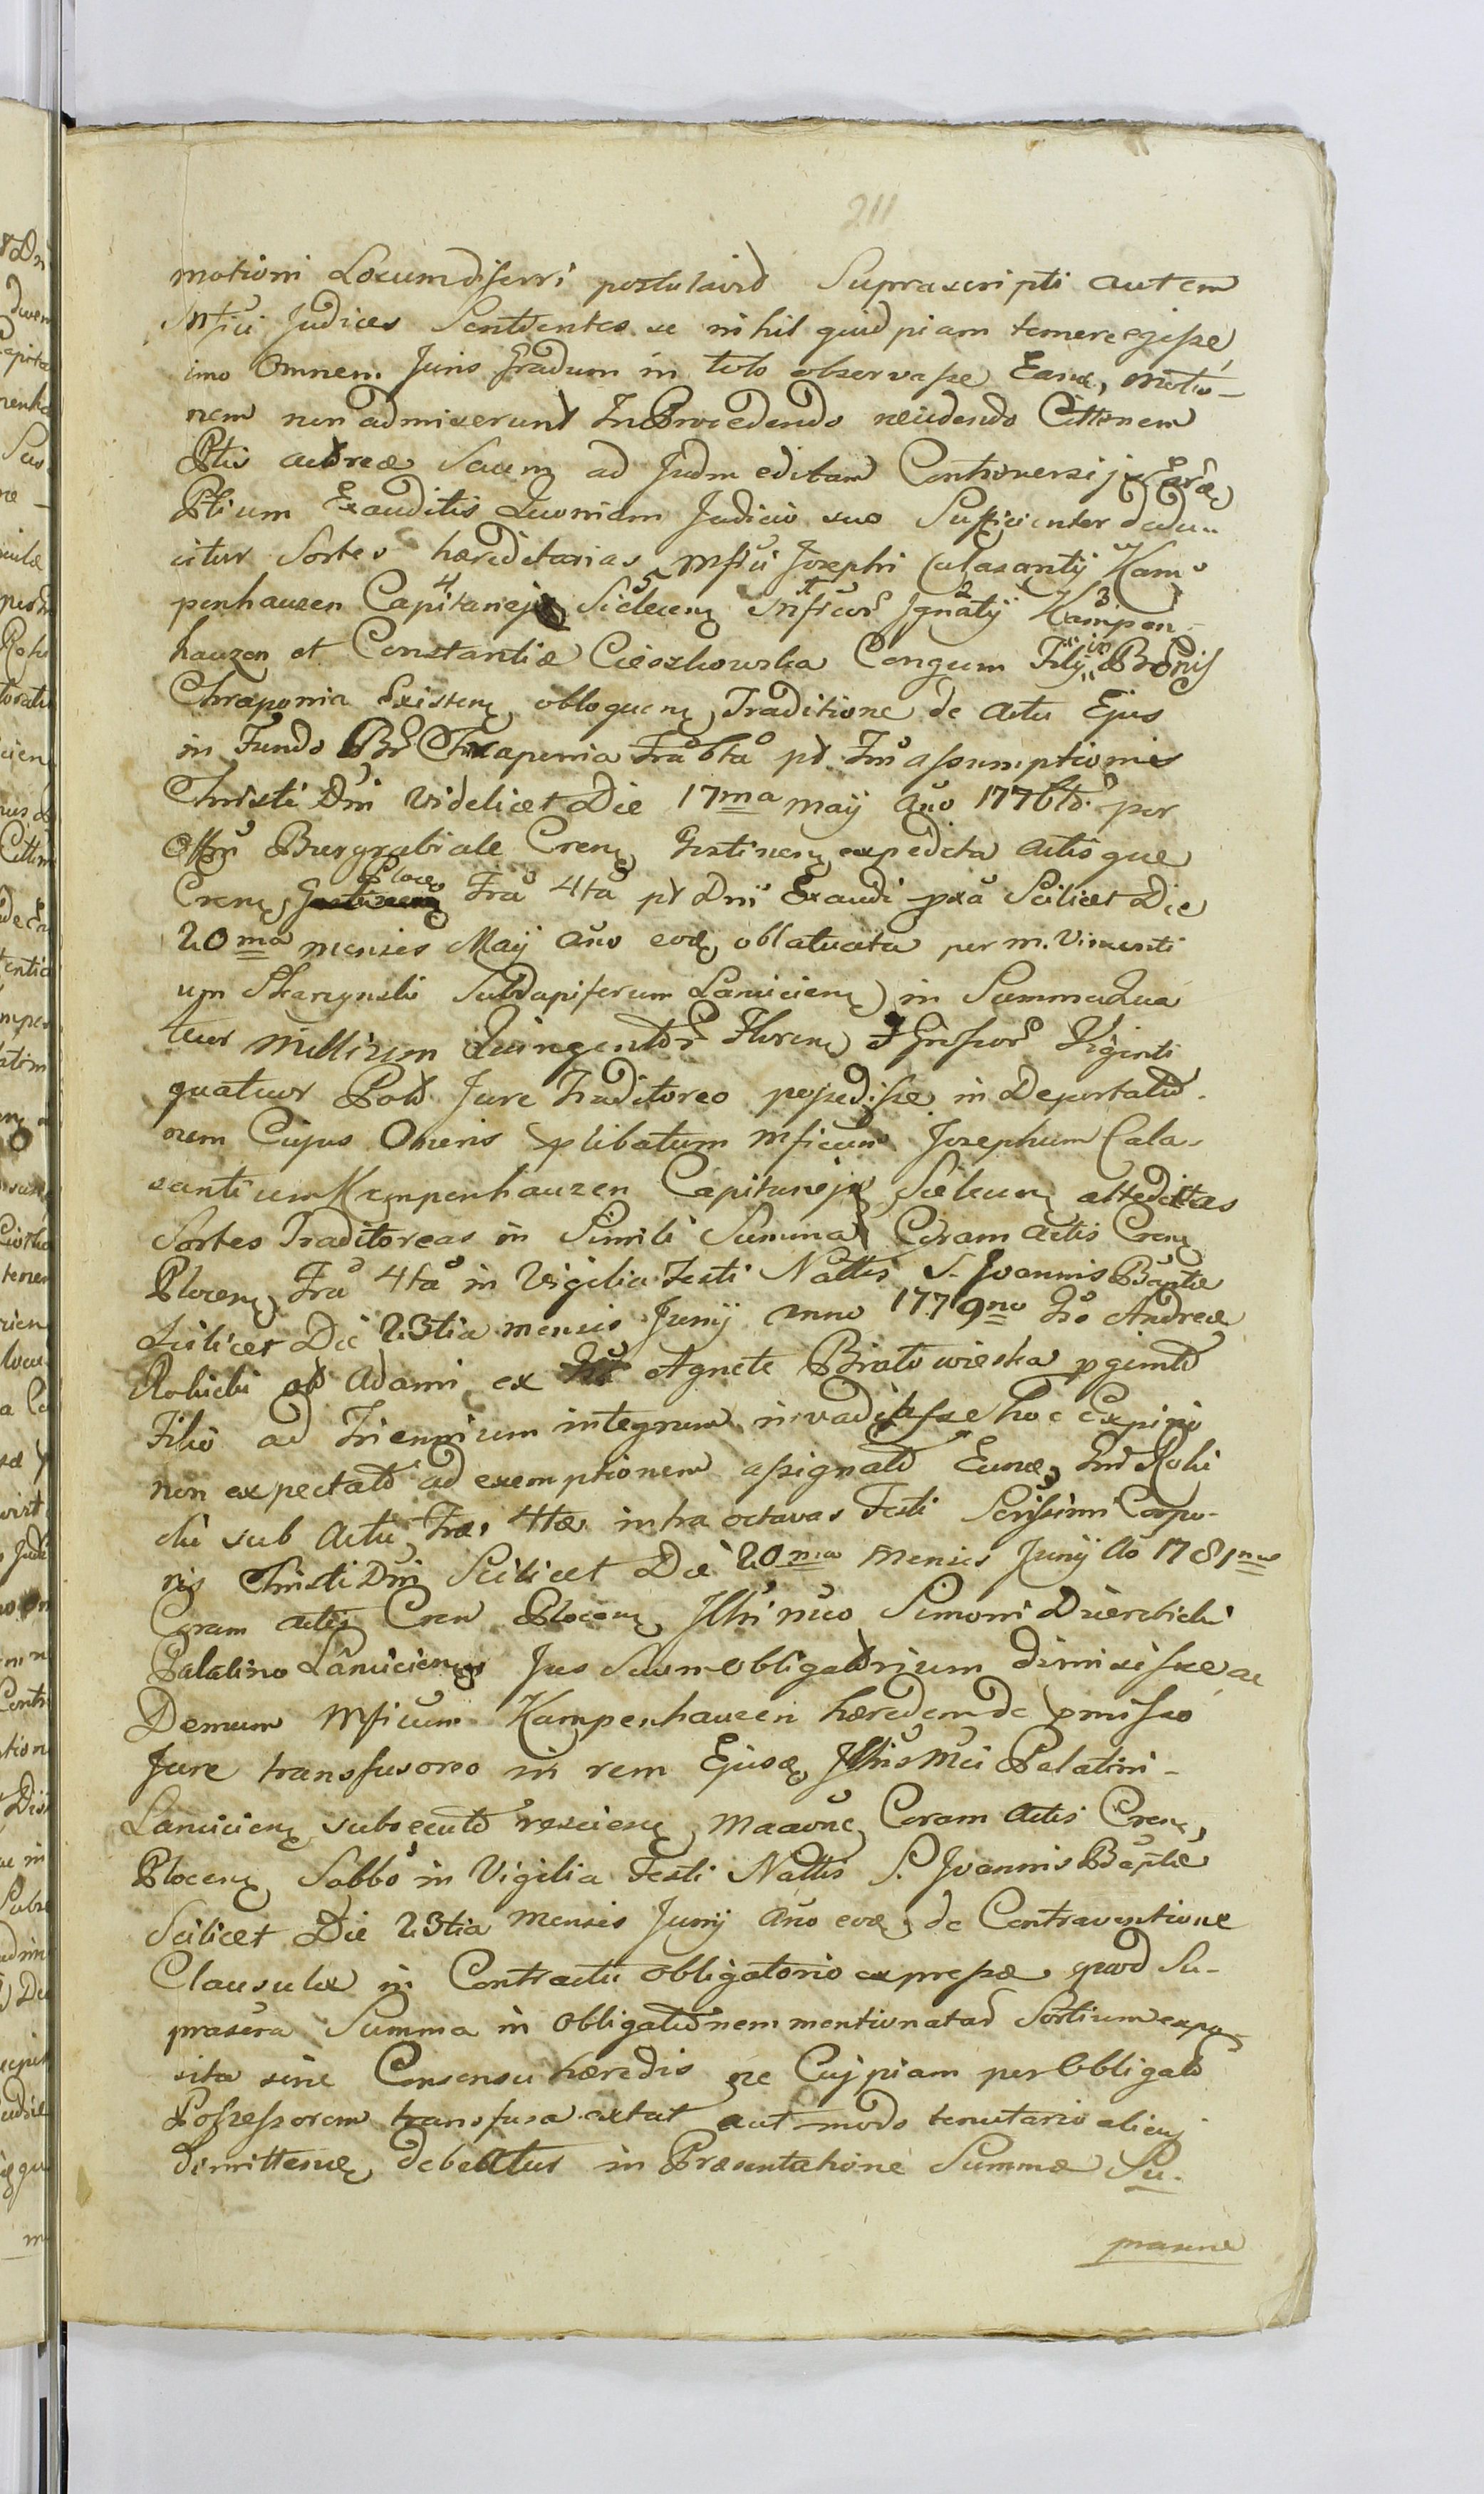 211
motioni Locum diferri postulavit Suprascripti autem
Mfici Judices Sentientes se nihil quidpiam temere egisse
imo Omnem Juris Gradum in toto observasse Eand, motio-
nem non admiserunt In Procedendo
Ptis actoreæ Suam ad Judm editam Controversijs
Ptium Exauditis Quoniam Judicio suo Sufficienter dedu-
citur Sortes hæreditarias Mfici Josephi Calasantij Kam-
penhauzen Capitanej Mficor Ignatij Kampen-
hauzen et Constantiæ Cieszkowska Congum Filij in Bonis
Chraponia Existen, obloquen, Traditione de Actu Ejus
in Fundo Bon Chraponia Fria 6ta pt Fm assumptionis
Christi Dni videlicet Die 17ma maij Ano 1776to per
Offm Burgrabiale Cren, Gostinen, expedita Actisque
Cren, Plocen, Fria 4ta pt Dni Exaudi pxa Scilicet Die
20ma mensis Maij Ano eod, oblatuata per m. Vincenti
um Skarzynski Subdapiferum Lancicien, in Summa Qua
tuor Millium Quingentor Floren, et Grossor Viginti
quatuor Pol Jure Traditoreo possedisse in Deportatio-
nem Cujus Oneris plibatum Mficum Josephum Cala-
santium Kampenhauzen Capitaneju altedictas
Sortes Traditoreas in Simili Summa Coram Actis Cren,
Plocen, Fria 4ta in Vigilia Festi Nattis S. Joannis Baptæ
Scilicet Die 23tia mensis Junij Anno 1779no Gso Andreæ
Rokicki olim Adami ex Agnete Biatowieska pgenito
Filio ad Triennium integrum invadiasse hoc Expirio
non expectato ad exemptionem assignato Eund, Gnd Roki
cki sub Actu Friæ 4tæ intra octavas Festi Scrissimi Corpo-
ris Christi Dni Scilicet Die 20ma Mensis Junij Ao 1781mo
Coram actis Cren Plocen, Illri mco Simoni Dzierzbicki
Palatino Lancicien, Jus Suum obligatorium dimisisse ac
Demum Mficum Kampenhauzen hæredem de pmisso
Jure transfusoreo in rem Ejusd, Illris Mci Palatini-
Lancicien, subsecuto rescien, Coram Actis Cren,
Plocen, Sabbo in Vigilia Festi Nattis S. Joannis Baptæ
Scilicet Die 23tia Mensis Junij Ano eod, de Contraventione
Clausulæ in Contractu obligatorio expressæ quod Su-
prascra Summa in obligationem mentionatar Sortium expo-
sita sine Consensu hæredis ne Cuipiam per Obligato
Possessorem transfusa extat aut modo tenutario alicuj
dimitten, debeatur in Præsentatione Summæ Su-
prascræ